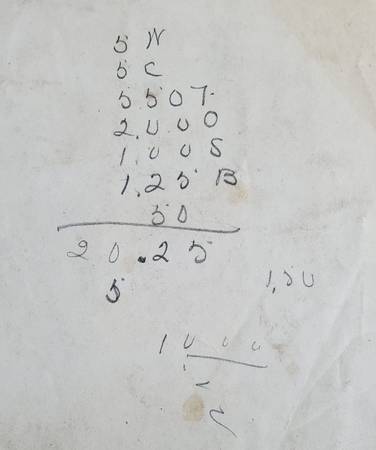 5 N
5 C
5 50 T
2.00 O
1.00 S
1.25 B
50
20.25
5
1.50
10 00